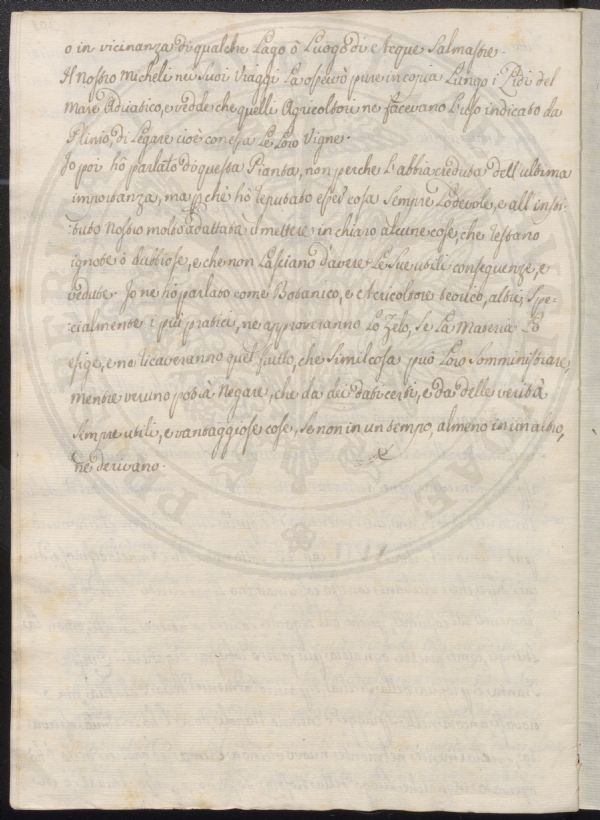 o in vicinanza di qualche Lago ò Luogo di Acque Salmastre.
Il Nostro Micheli nei suoi Viaggi La osservò pure in copia Lungo i Lidi del
Mare Adriatico, e vedde che quelli Agricoltori ne facevano L'uso indicato da
Plinio, di Legare cioè con essa Le Loro Vigne.
Io poi hò parlato di questa Pianta, non perche L'abbia creduta dell'ultima
importanza, ma pchè hò reputato esser cosa sempre Lodevole, e all'insti-
:tuto Nostro molto adattata il mettere in chiaro alcune cose, che restano
ignote o dubbiose, e che non Lasciano d'avere Le Sue utili conseguenze, e
vedute. Io ne hò parlato come Botanico, e Agricoltore teorico, altri, spe-
:cialmente i più pratici, ne approveranno Lo Zelo, se La Materia Lo
esige, e ne ricaveranno quel frutto, che simil cosa può Loro somministrare,
mentre veruno potrà negare, che da dei dati certi, e da delle verità
sempre utili, e vantaggiose cose, se non in un tempo, almeno in un altro,
ne derivano.